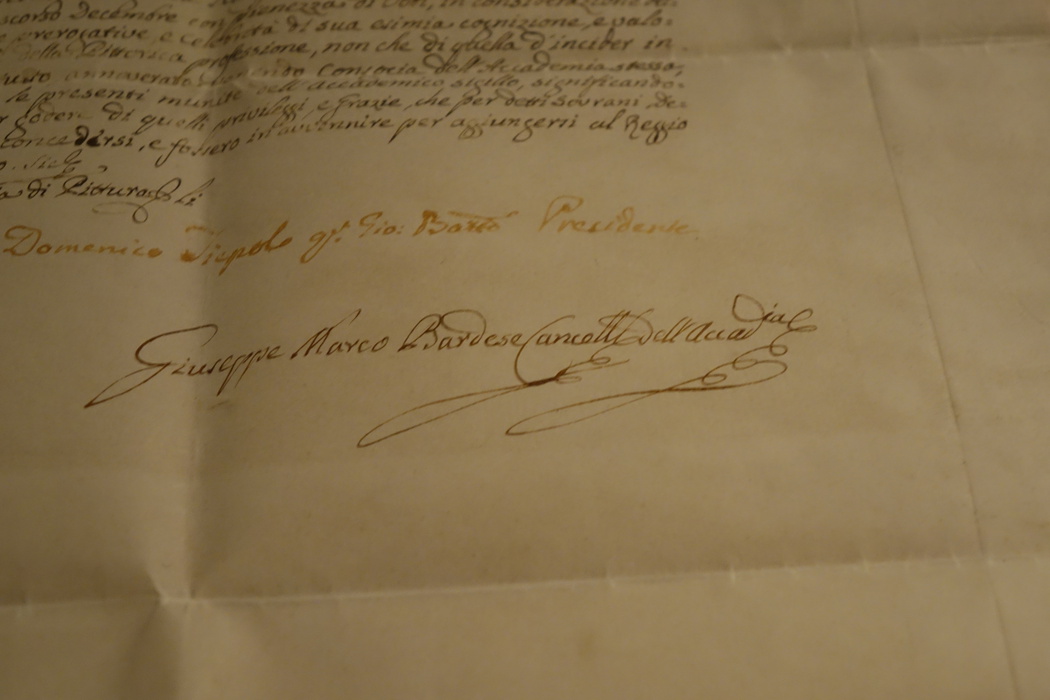 scorso Decembre con pienezza di Voti, in considerazione del-
e prerogative, e celebrità di sua esimia cognizione, e valo-
della Pittorica professione, non che di quella d'incider in
annoserata Consocia dell'Accademia stessa,
le presenti munite dell'accademico sigillo, significando-
r Godere di quelli privileggi, e grazie, che per detti Sovrani De-
concedersi, e fossero in avvennire per aggiungersi al Reggio
di Pittura &
Domenico Tiepolo qm. Gio: Batta Presidente
Giuseppe Marco Bardese Cancell.e dell'Accad.ia